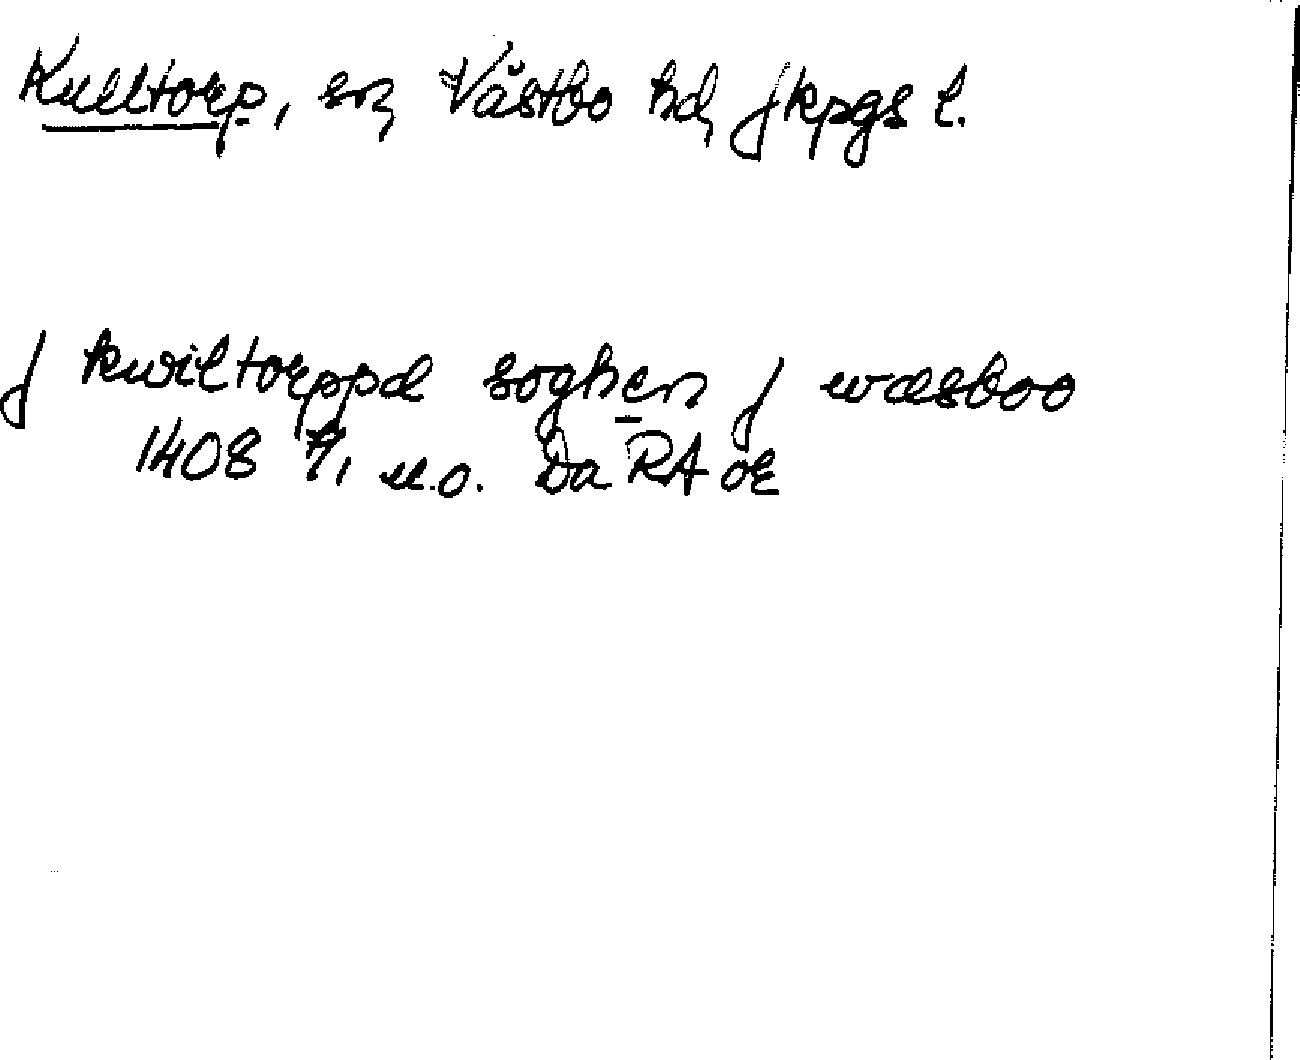 Kulltorp, sn, Västbo hd, Jkpgs l.
J kwiltorppæ soghen J wæsboo
1408 7/1 u.o. Da RA or